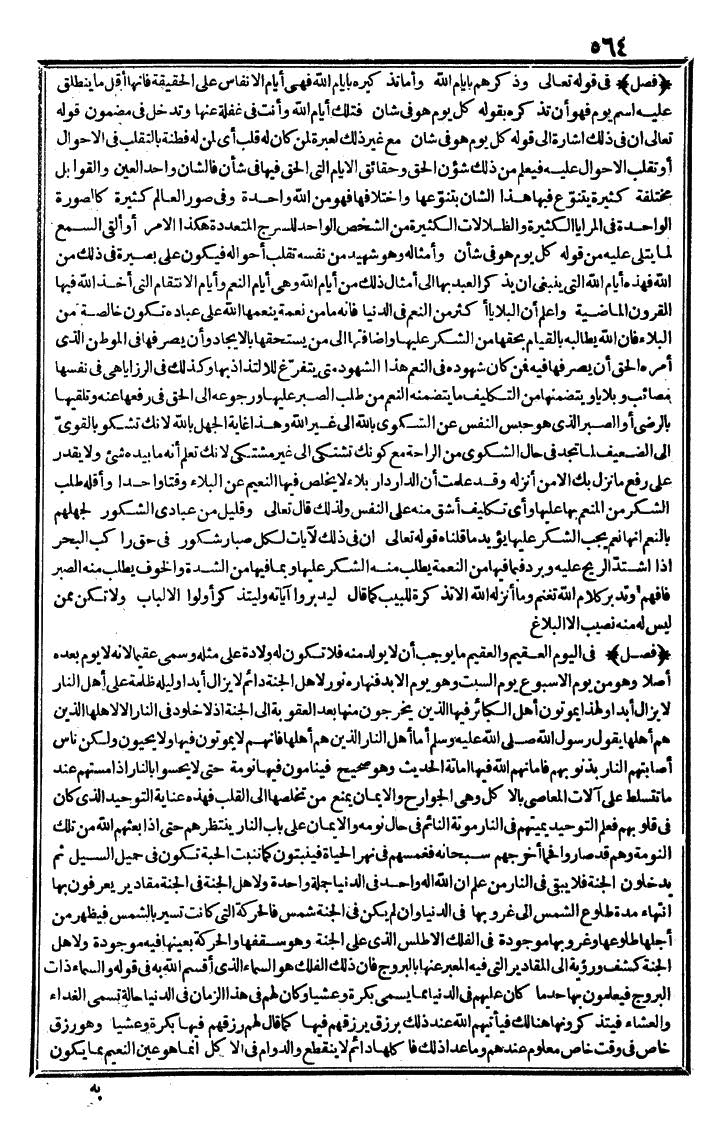 ٥٦٤
﴿فصل﴾ فى قوله تعالى وذكرهم بايام الله وأما تذكيره بايام الله فهى أيام الانفاس على الحقيقة فانها أقل ما ينطلق
عليه اسم يوم فهو أن تذكره بقوله كل يوم هو فى شان فتلك أيام الله وأنت فى غفلة عنها وتدخل فى مضمون قوله
تعالى ان فى ذلك اشارة الى قوله كل يوم هو فى شان مع غير ذلك لعبرة لمن كان له قلب أى لمن له فطنة بالتقلب فى الاحوال
أو تقلب الاحوال عليه فيعلم من ذلك شؤن الحق وحقائق الايام التى الحق فيها فى شأن فالشان واحد العين والقوابل
مختلفة كثيرة يتنوّع فيها هذا الشان بتنوّعها واختلافها فهو من الله واحدة وفى صور العالم كثيرة كالصورة
الواحدة فى المرايا الكثيرة والظلالات الكثيرة من الشخص الواحد للسرج المتعددة هكذا الامر أو ألقى السمع
لما يتلى عليه من قوله كل يوم هو فى شأن وأمثاله وهو شهيد من نفسه تقلب أحواله فيكون على بصيرة فى ذلك من
الله فهذه أيام الله التى ينبغى ان يذكر العبد بها الى أمثال ذلك من أيام الله وهى أيام النعم وأيام الانتقام التى أخذ الله فيها
القرون الماضية واعلم أن البلايا أكثر من النعم فى الدنيا فانه ما من نعمة ينعمها الله على عباده تكون خالصة من
البلاء فان الله يطالبه بالقيام بحقها من الشكر عليها واضافتها الى من يستحقها بالايجاد وأن يصرفها فى الموطن الذى
أمره الحق أن يصرفها فيه فمن كان شهوده فى النعم هذا الشهود متى يتفرّغ للالتذاذ بها وكذلك فى الرزايا هى فى نفسها
مصائب وبلايا ويتضمنها من التكليف ما يتضمنه النعم من طلب الصبر عليها ورجوعه الى الحق فى رفعها عنه وتلقيها
بالرضى أو الصبر الذى هو حبس النفس عن الشكوى بالله الى غير الله وهذا غاية الجهل بالله لانك تشكو بالقوىّ
الى الضعيف لما تجد فى حال الشكوى من الراحة مع كونك تشتكى الى غير مشتكى لانك تعلم أنه ما بيده شئ ولا يقدر
على رفع ما نزل بك الا من أنزله وقد علمت أن الدار دار بلاء لا يخلص فيها النعيم عن البلاء وقتا واحدا وأقله طلب
الشكر من المنعم بها عليها وأى تكليف أشق منه على النفس ولذلك قال تعالى وقليل من عبادى الشكور لجهلهم
بالنعم انها نعم يجب الشكر عليها يؤيد ما قلناه قوله تعالى ان فى ذلك لآيات لكل صبار شكور فى حق راكب البحر
اذا اشتدّ الريح عليه وبرد فيما فيها من النعمة يطلب منه الشكر عليها وبما فيها من الشدة والخوف يطلب منه الصبر
فافهم وتدبر كلام الله تغنم وما أنزله الله الا تذكرة للبيب كما قال ليدبروا آياته وليتذكر أولوا الالباب ولا تكن ممن
ليس له منه نصيب الا البلاغ
﴿فصل﴾ فى اليوم العقيم والعقيم ما يوجب أن لا يولد منه فلا تكون له ولادة على مثله وسمى عقيما لانه لا يوم بعده
أصلا وهو من يوم الاسبوع يوم السبت وهو يوم الابد فنهاره نور لاهل الجنة دائم لا يزال أبدا وليله ظلمة على أهل النار
لا يزال أبدا ولهذا يموتون أهل الكبائر فيها الذين يخرجون منها بعد العقوبة الى الجنة اذ لا خلود فى النار الا لاهلها الذين
هم أهلها يقول رسول الله صلى الله عليه وسلم أما أهل النار الذين هم أهلها فانهم لا يموتون فيها ولا يحيون ولكن ناس
أصابتهم النار بذنوبهم فاماتهم الله فيها اماتة الحديث وهو صحيح فينامون فيها نومة حتى لا يحسوا بالنار اذا مستهم عند
ما تتسلط على آلات المعاصى بالاكل وهى الجوارح والايمان يمنع من تخلصها الى القلب فهذه عناية التوحيد الذى كان
فى قلوبهم فعلم التوحيد يميتهم فى النار موتة النائم فى حال نومه والايمان على باب النار ينتظرهم حتى اذا بعثهم الله من تلك
النومة وهم قد صاروا فحما أخرجهم سبحانه فغمسهم فى نهر الحياة فينبتون كما تنبت الحبة تكون فى حميل السيل ثم
يدخلون الجنة فلا يبقى فى النار من علم ان الله اله واحد فى الدنيا جملة واحدة ولاهل الجنة فى الجنة مقادير يعرفون بها
انتهاء مدة طلوع الشمس الى غروبها فى الدنيا وان لم يكن فى الجنة شمس فالحركة التى كانت تسير بالشمس فيظهر من
أجلها طلوعها وغروبها موجودة فى الفلك الاطلس الذى على الجنة وهو سقفها والحركة بعينها فيه موجودة ولاهل
الجنة كشف ورؤية الى المقادير التى فيه المعبر عنها بالبروج فان ذلك الفلك هو السماء الذى أقسم الله به فى قوله والسماء ذات
البروج فيعلمون بها حد ما كان عليهم فى الدنيا بما يسمى بكرة وعشيا وكان لهم فى هذا الزمان فى الدنيا حالة تسمى الغداء
والعشاء فيتذكرونها هنالك فيأتيهم الله عند ذلك برزق يرزقهم فيها كما قال لهم رزقهم فيها بكرة وعشيا وهو رزق
خاص فى وقت خاص معلوم عندهم وما عدا ذلك فاكلها دائم لا ينقطع والدوام فى الاكل انما هو عين النعيم بما يكون
به